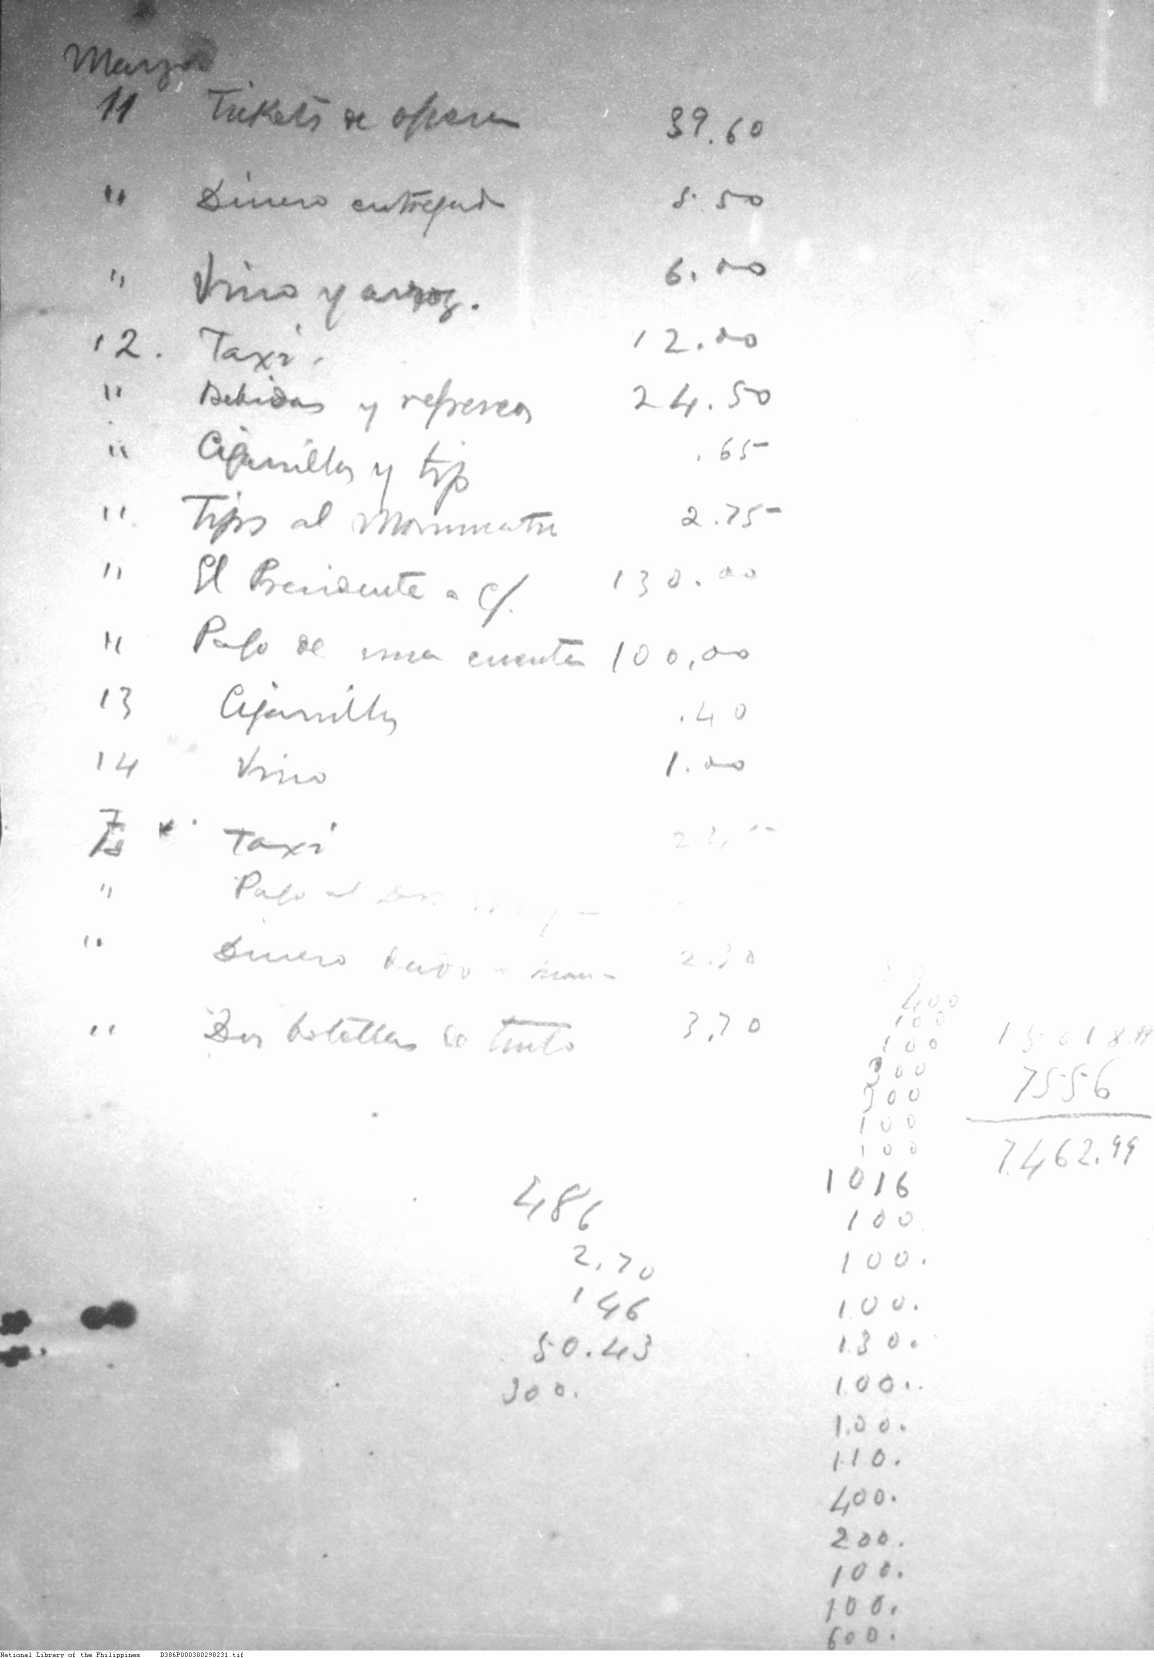 Marzo
11 Tickets de opera 39.60
" Dinero entregado 5.50
" Vino y arroz. 6.00
12. Taxi. 12.00
" Bebidas y refrescos 24.50
" Cigarrillos y tip .65
" Tips al 2.75
" El Presidente a c/. 130.00
" Pago de una cuenta 100,00
13 Cigarrillos .40
14 Vino 1.00
Taxi
" Pago al
" Dinero 2.30
" Dos botellas de tinto 3,70
400
100
100
300
300
100
100
1016
100
100.
100.
130.
100.
100.
110.
400.
200.
100.
100.
600.
15018.99
7556
7462.99
486
2,70
146
50.43
300.
National Library of the Philippines D386P000300290231.tif